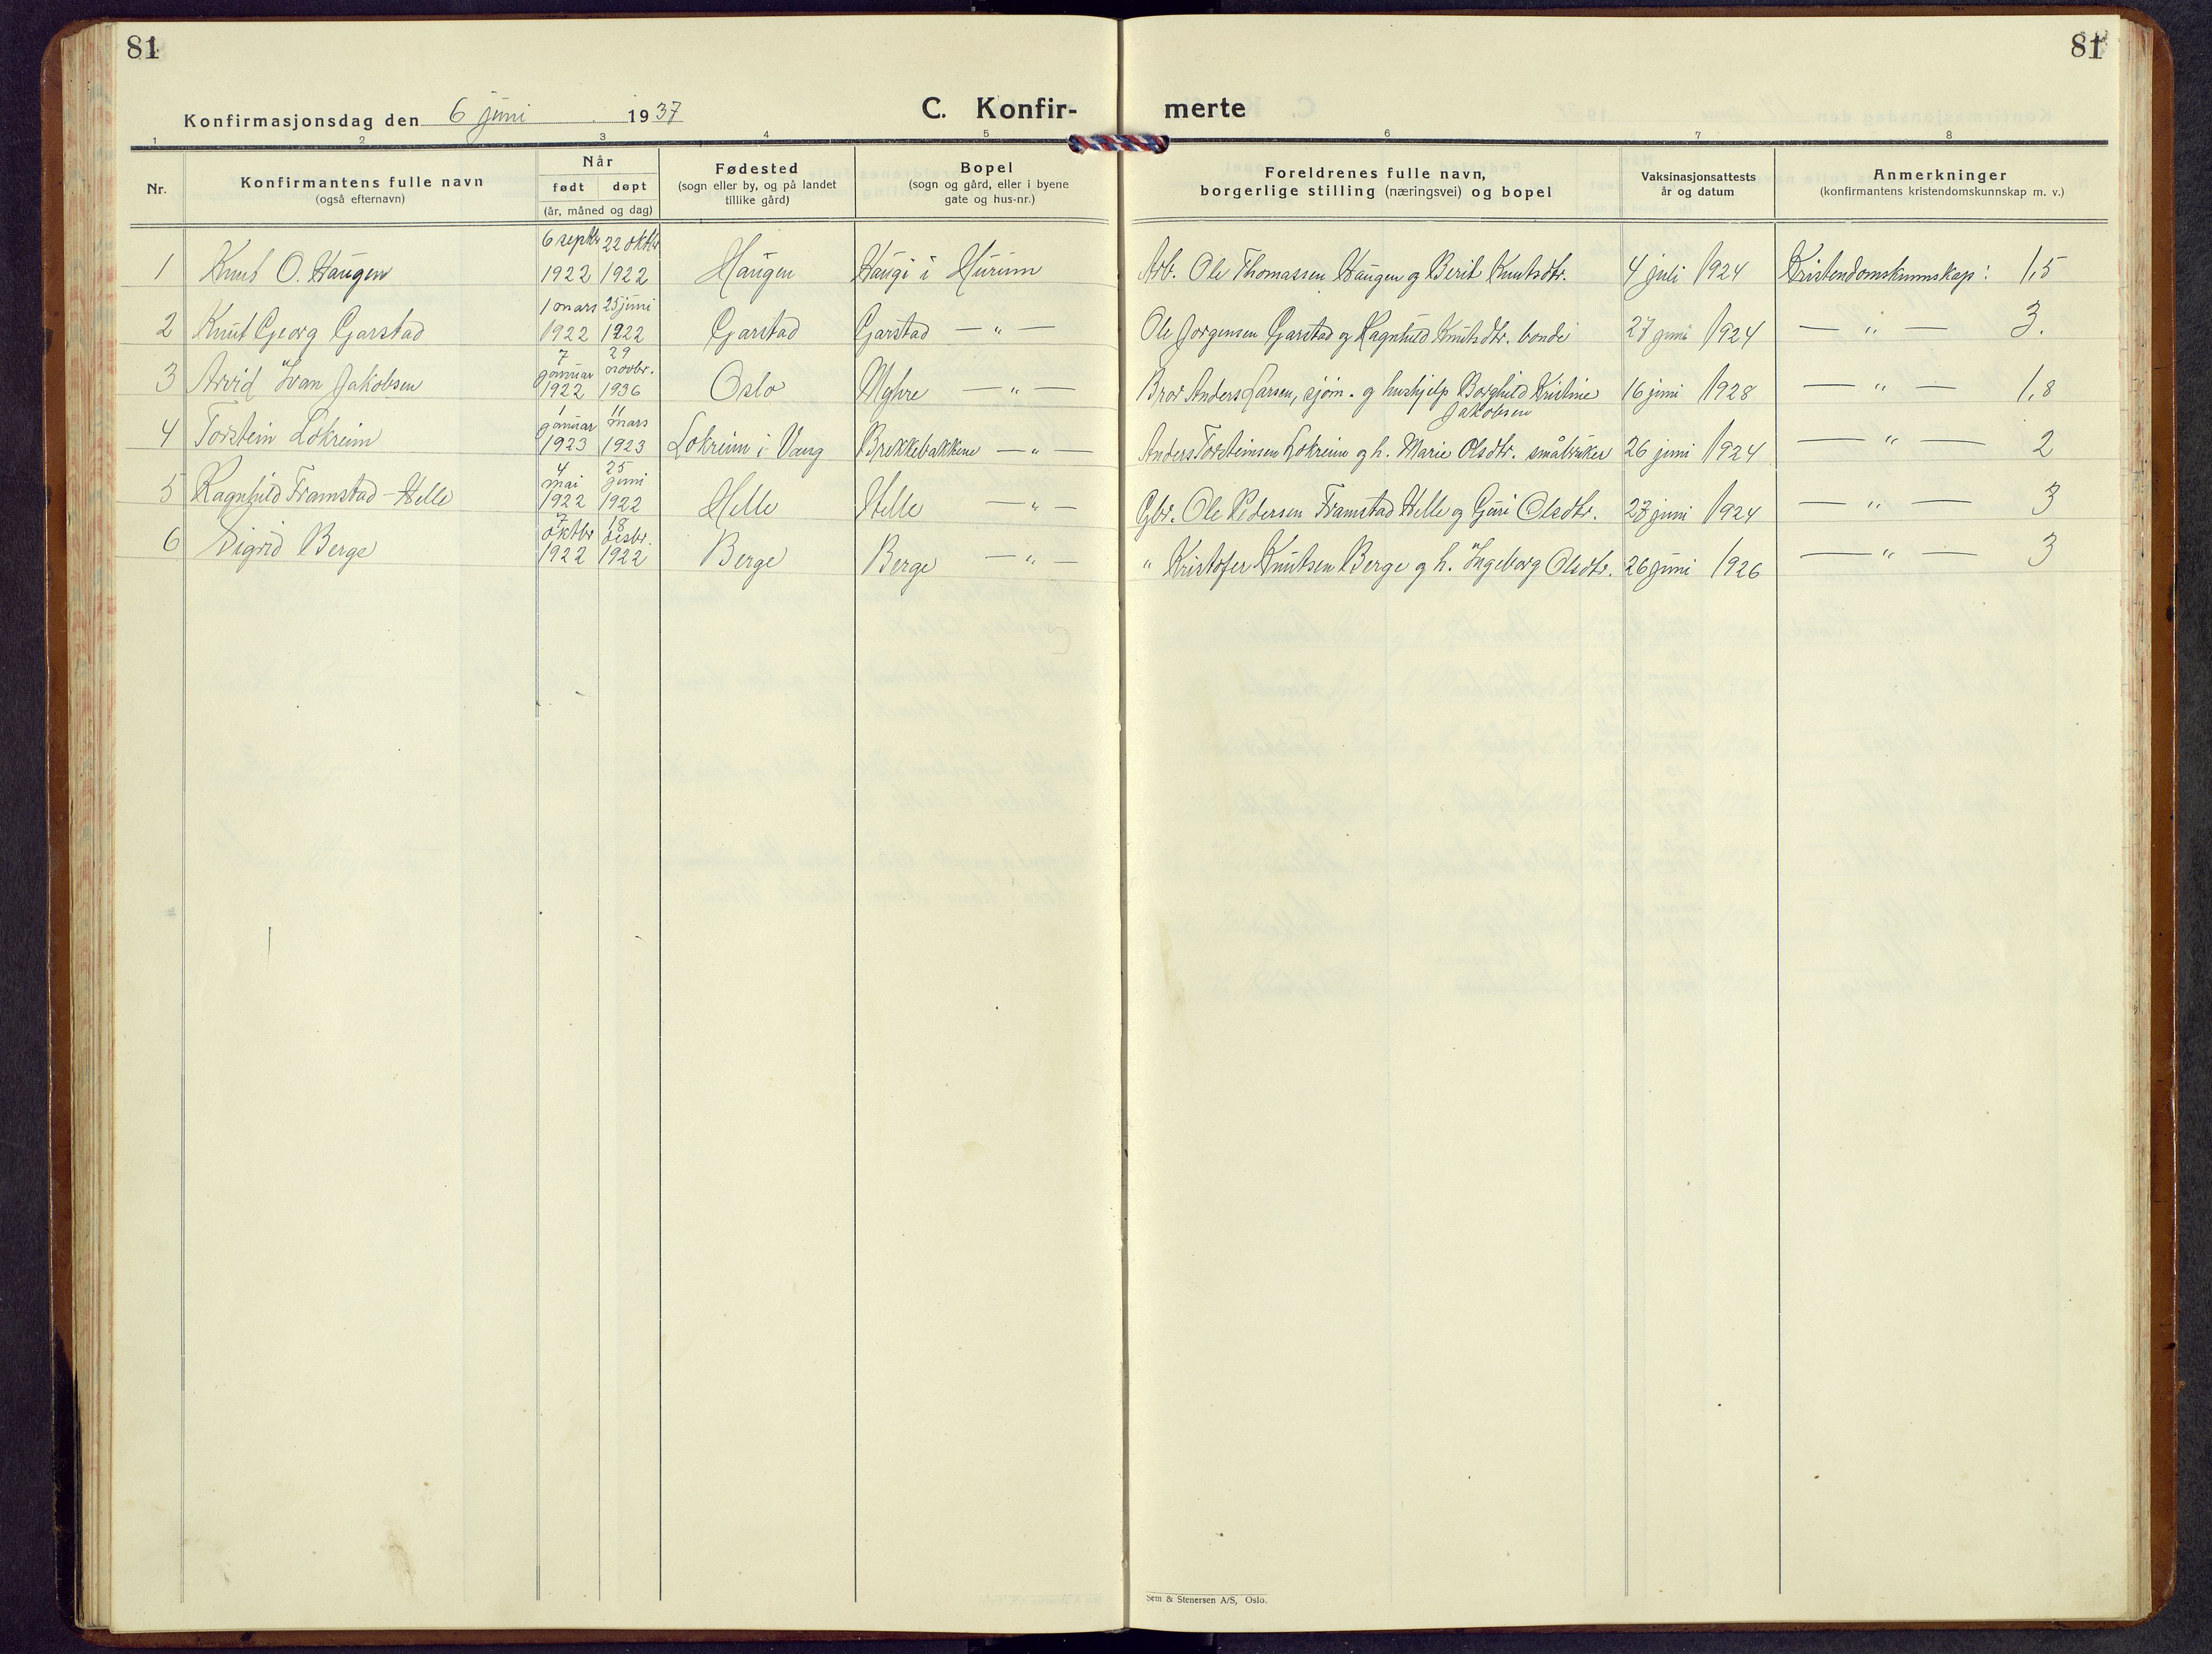 81
81
Konfirmasjonsdag den 6 juni 1937
C. Konfir-
merte
1 2 3 4 5 6 7 8
Nr.
Konfirmantens fulle navn
(også efternavn)
Når
født døpt
(år, måned og dag)
Fødested
(sogn eller by, og på landet
tillike gård)
Bopel
(sogn og gård, eller i byene
gate og hus-nr.)
Foreldrenes fulle navn,
borgerlige stilling (næringsvei) og bopel
Vaksinasjonsattests
år og datum
Anmerkninger
(konfirmantens kristendomskunnskap m. v.)
6 septbr 22 oktbr
1 Knut O. Haugen 1922 1922 Haugen Haugi i Hurum Arb. Ole Thomassen Haugen og Berit Knutsdtr. 4 juli 1924 Kristendomskunnskap: 1,5
1 mars 25 juni
2 Knut Georg Garstad 1922 1922 Garstad Garstad — " — Ole Jørgensen Garstad og Ragnhild Knutsdtr. bonde 27 juni 1924 — " — 3.
7 29
januar novbr.
3 Arvid Ivan Jakobsen 1922 1936 Oslo Myhre — " — Bror Anders Larsen, sjøm. og hushjelp Borghild Kristine 16 juni 1928 — " — 1,8
Jakobsen
1 11
januar mars
4 Torstein Lokreim 1923 1923 Lokreim i Vang Brekkebakkene — " — Anders Torsteinsen Lokreim og h. Marie Olsdtr. småbruker 26 juni 1924 — " — 2
4 25
mai juni
5 Ragnhild Framstad-Helle 1922 1922 Helle Helle — " — Gbr. Ole Pedersen Framstad Helle og Guri Olsdtr. 27 juni 1924 — " — 3
7 18
oktbr desbr.
6 Sigrid Berge 1922 1922 Berge Berge — " — " Kristofer Knutsen Berge og h. Ingeborg Olsdtr. 26 juni 1926 — " — 3
Sem & Stenersen A/S, Oslo.